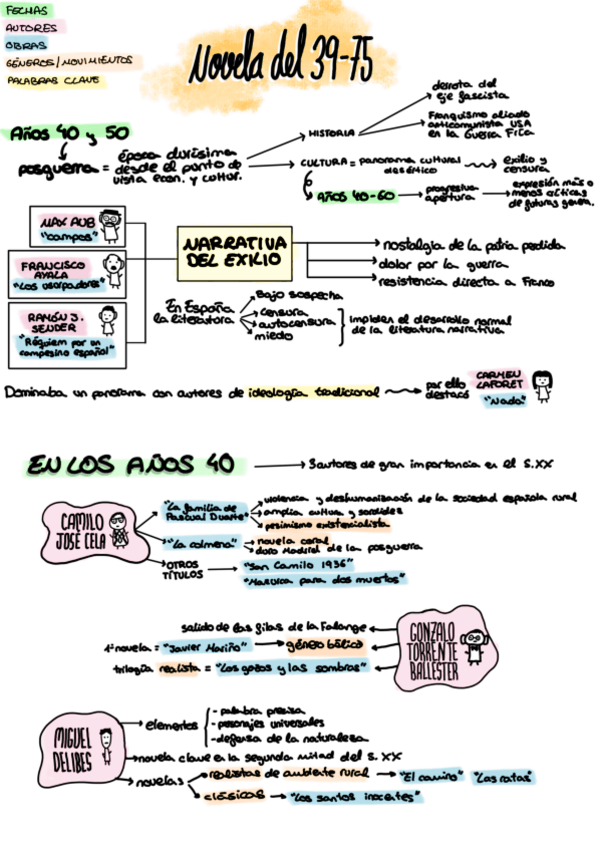 FECHAS
AUTORES
OBRAS
GÉNEROS/MOVIMIENTOS
PALABRAS CLAVE
Novela del 39-75
AÑOS 40 y 50
posguerra = época durísima
desde el punto de
vista econ. y cultur.
HISTORIA
derrota del
eje fascista
Franquismo aliado
anticomunista USA
en la Guerra Fría
CULTURA = panorama cultural
desértico
exilio y
censura
AÑOS 40-60
progresiva
apertura
expresión más o
menos críticas
de futuras gener.
MAX AUB
"campos"
FRANCISCO
AYALA
"Los usurpadores"
RAMÓN J.
SENDER
"Réquiem por un
campesino español"
NARRATIVA
DEL EXILIO
nostalgia de la patria perdida
dolor por la guerra
resistencia directa a Franco
En España
la literatura
Bajo sospecha
censura
autocensura
miedo
Impiden el desarrollo normal
de la literatura narrativa
Dominaba un panorama con autores de ideología tradicional
por ello
destacó
CARMEN
LAFORET
"Nada"
EN LOS AÑOS 40
3 autores de gran importancia en el S.XX
CAMILO
JOSÉ CELA
"La familia de
Pascual Duarte"
violencia y deshumanización de la sociedad española rural
amplia cultura y sordidez
pesimismo existencialista
"La colmena"
novela coral
duro Madrid de la posguerra
OTROS
TÍTULOS
"San Camilo 1936"
"Mazurca para dos muertos"
GONZALO
TORRENTE
BALLESTER
salido de las filas de la Falange
1ª novela = "Javier Mariño"
género bélico
trilogía realista = "Los gozos y las sombras"
MIGUEL
DELIBES
elementos
- palabra precisa
- personajes universales
- defensa de la naturaleza
novela clave en la segunda mitad del S. XX
novelas
realistas de ambiente rural
"El camino" "Las ratas"
clásicas
"Los santos inocentes"